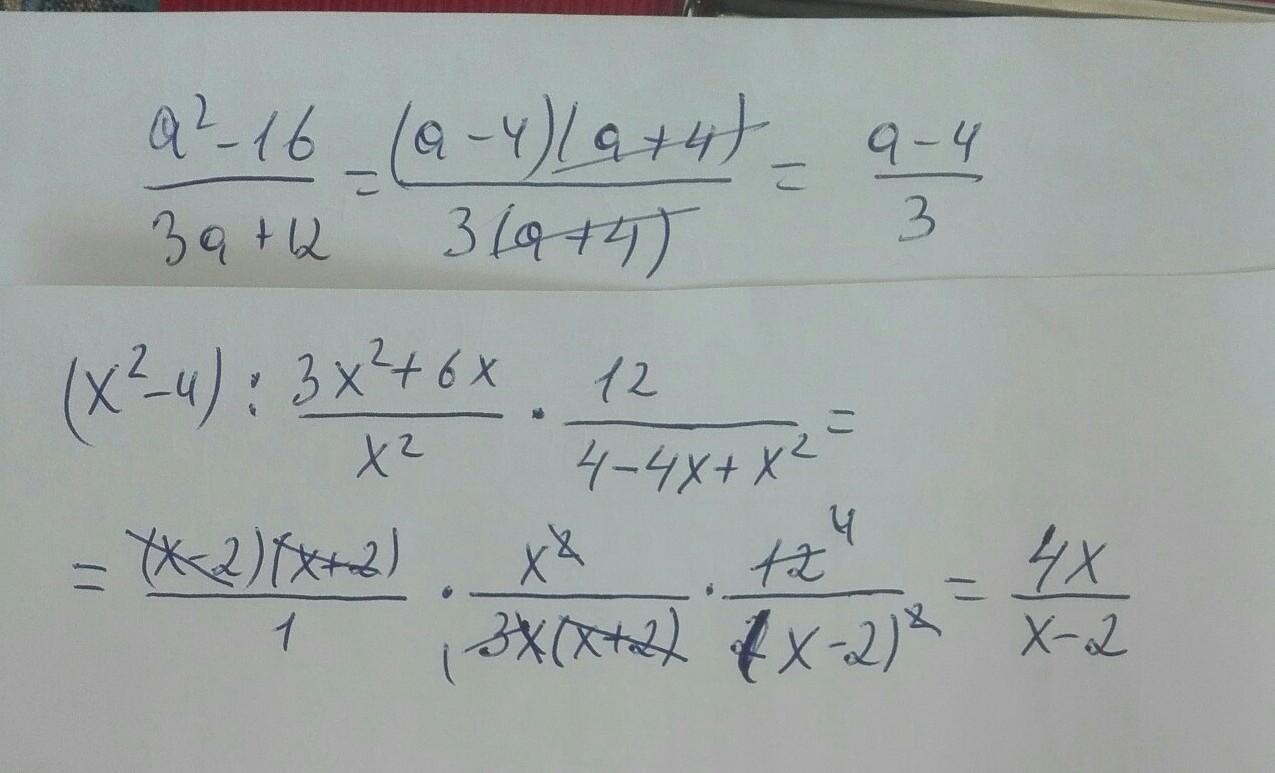 a²-16/3a+12 = (a-4)(a+4)/3(a+4) = a-4/3
(x²-4) : 3x²+6x/x² · 12/4-4x+x² =
= (x-2)(x+2)/1 · x²/3x(x+2) · 12/(x-2)² = 4x/x-2